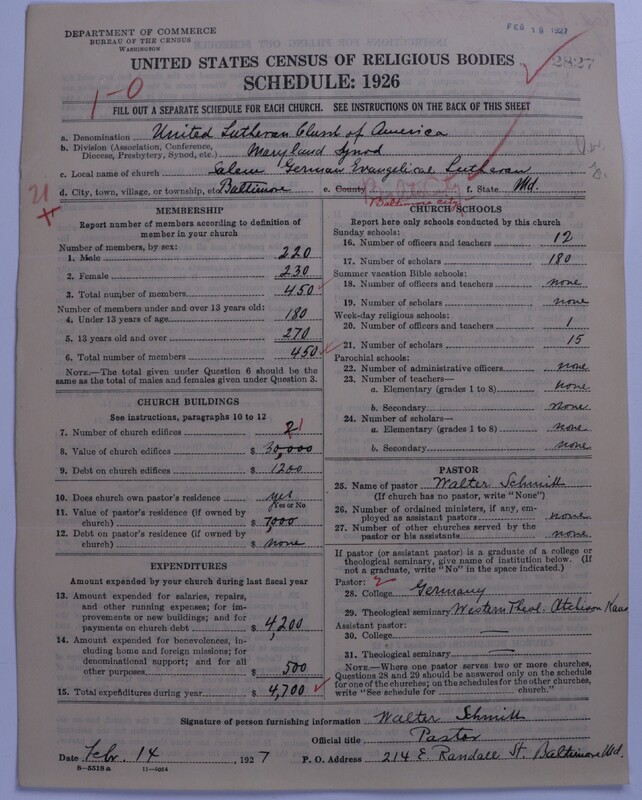 DEPARTMENT OF COMMERCE
BUREAU OF THE CENSUS
WASHINGTON
FEB 19 1927
UNITED STATES CENSUS OF RELIGIOUS BODIES
2827
SCHEDULE: 1926
1-0
FILL OUT A SEPARATE SCHEDULE FOR EACH CHURCH. SEE INSTRUCTIONS ON THE BACK OF THIS SHEET
a. Denomination United Lutheran Church of America
b. Division (Association, Conference,
Diocese, Presbytery, Synod, etc.) Maryland Synod
c. Local name of church Salem German Evangelical Lutheran
d. City, town, village, or township, etc. Baltimore e. County Balto City f. State Md.
Baltimore city
21
MEMBERSHIP
Report number of members according to definition of
member in your church
Number of members, by sex:
1. Male 220
2. Female 230
3. Total number of members 450
Number of members under and over 13 years old:
4. Under 13 years of age 180
5. 13 years old and over 270
6. Total number of members 450
NOTE.—The total given under Question 6 should be
the same as the total of males and females given under Question 3.
CHURCH BUILDINGS
See instructions, paragraphs 10 to 12
7. Number of church edifices 2 1
8. Value of church edifices $ 30,000
9. Debt on church edifices $ 1200
10. Does church own pastor's residence yes
Yes or No
11. Value of pastor's residence (if owned by
church) $ 7,000
12. Debt on pastor's residence (if owned by
church) $ none
EXPENDITURES
Amount expended by your church during last fiscal year
13. Amount expended for salaries, repairs,
and other running expenses; for im-
provements or new buildings; and for
payments on church debt $ 4,200
14. Amount expended for benevolences, in-
cluding home and foreign missions; for
denominational support; and for all
other purposes $ 500
15. Total expenditures during year $ 4,700
CHURCH SCHOOLS
Report here only schools conducted by this church
Sunday schools:
16. Number of officers and teachers 12
17. Number of scholars 180
Summer vacation Bible schools:
18. Number of officers and teachers none
19. Number of scholars none
Week-day religious schools:
20. Number of officers and teachers 1
21. Number of scholars 15
Parochial schools:
22. Number of administrative officers none
23. Number of teachers—
a. Elementary (grades 1 to 8) none
b. Secondary none
24. Number of scholars—
a. Elementary (grades 1 to 8) none
b. Secondary none
PASTOR
25. Name of pastor Walter Schmitt
(If church has no pastor, write "None")
26. Number of ordained ministers, if any, em-
ployed as assistant pastors none
27. Number of other churches served by the
pastor or his assistants none
If pastor (or assistant pastor) is a graduate of a college or
theological seminary, give name of institution below. (If
not a graduate, write "No" in the space indicated.)
Pastor: 2
28. College Germany
29. Theological seminary Western Theol. Atchison Kans
Assistant pastor:
30. College —
31. Theological seminary —
NOTE.—Where one pastor serves two or more churches,
Questions 28 and 29 should be answered only on the schedule
for one of the churches; on the schedules for the other churches,
write "See schedule for church."
Signature of person furnishing information Walter Schmitt
Official title Pastor
Date Febr. 14 1927 P. O. Address 214 E. Randall St. Baltimore Md.
8—5518 a 11—5024